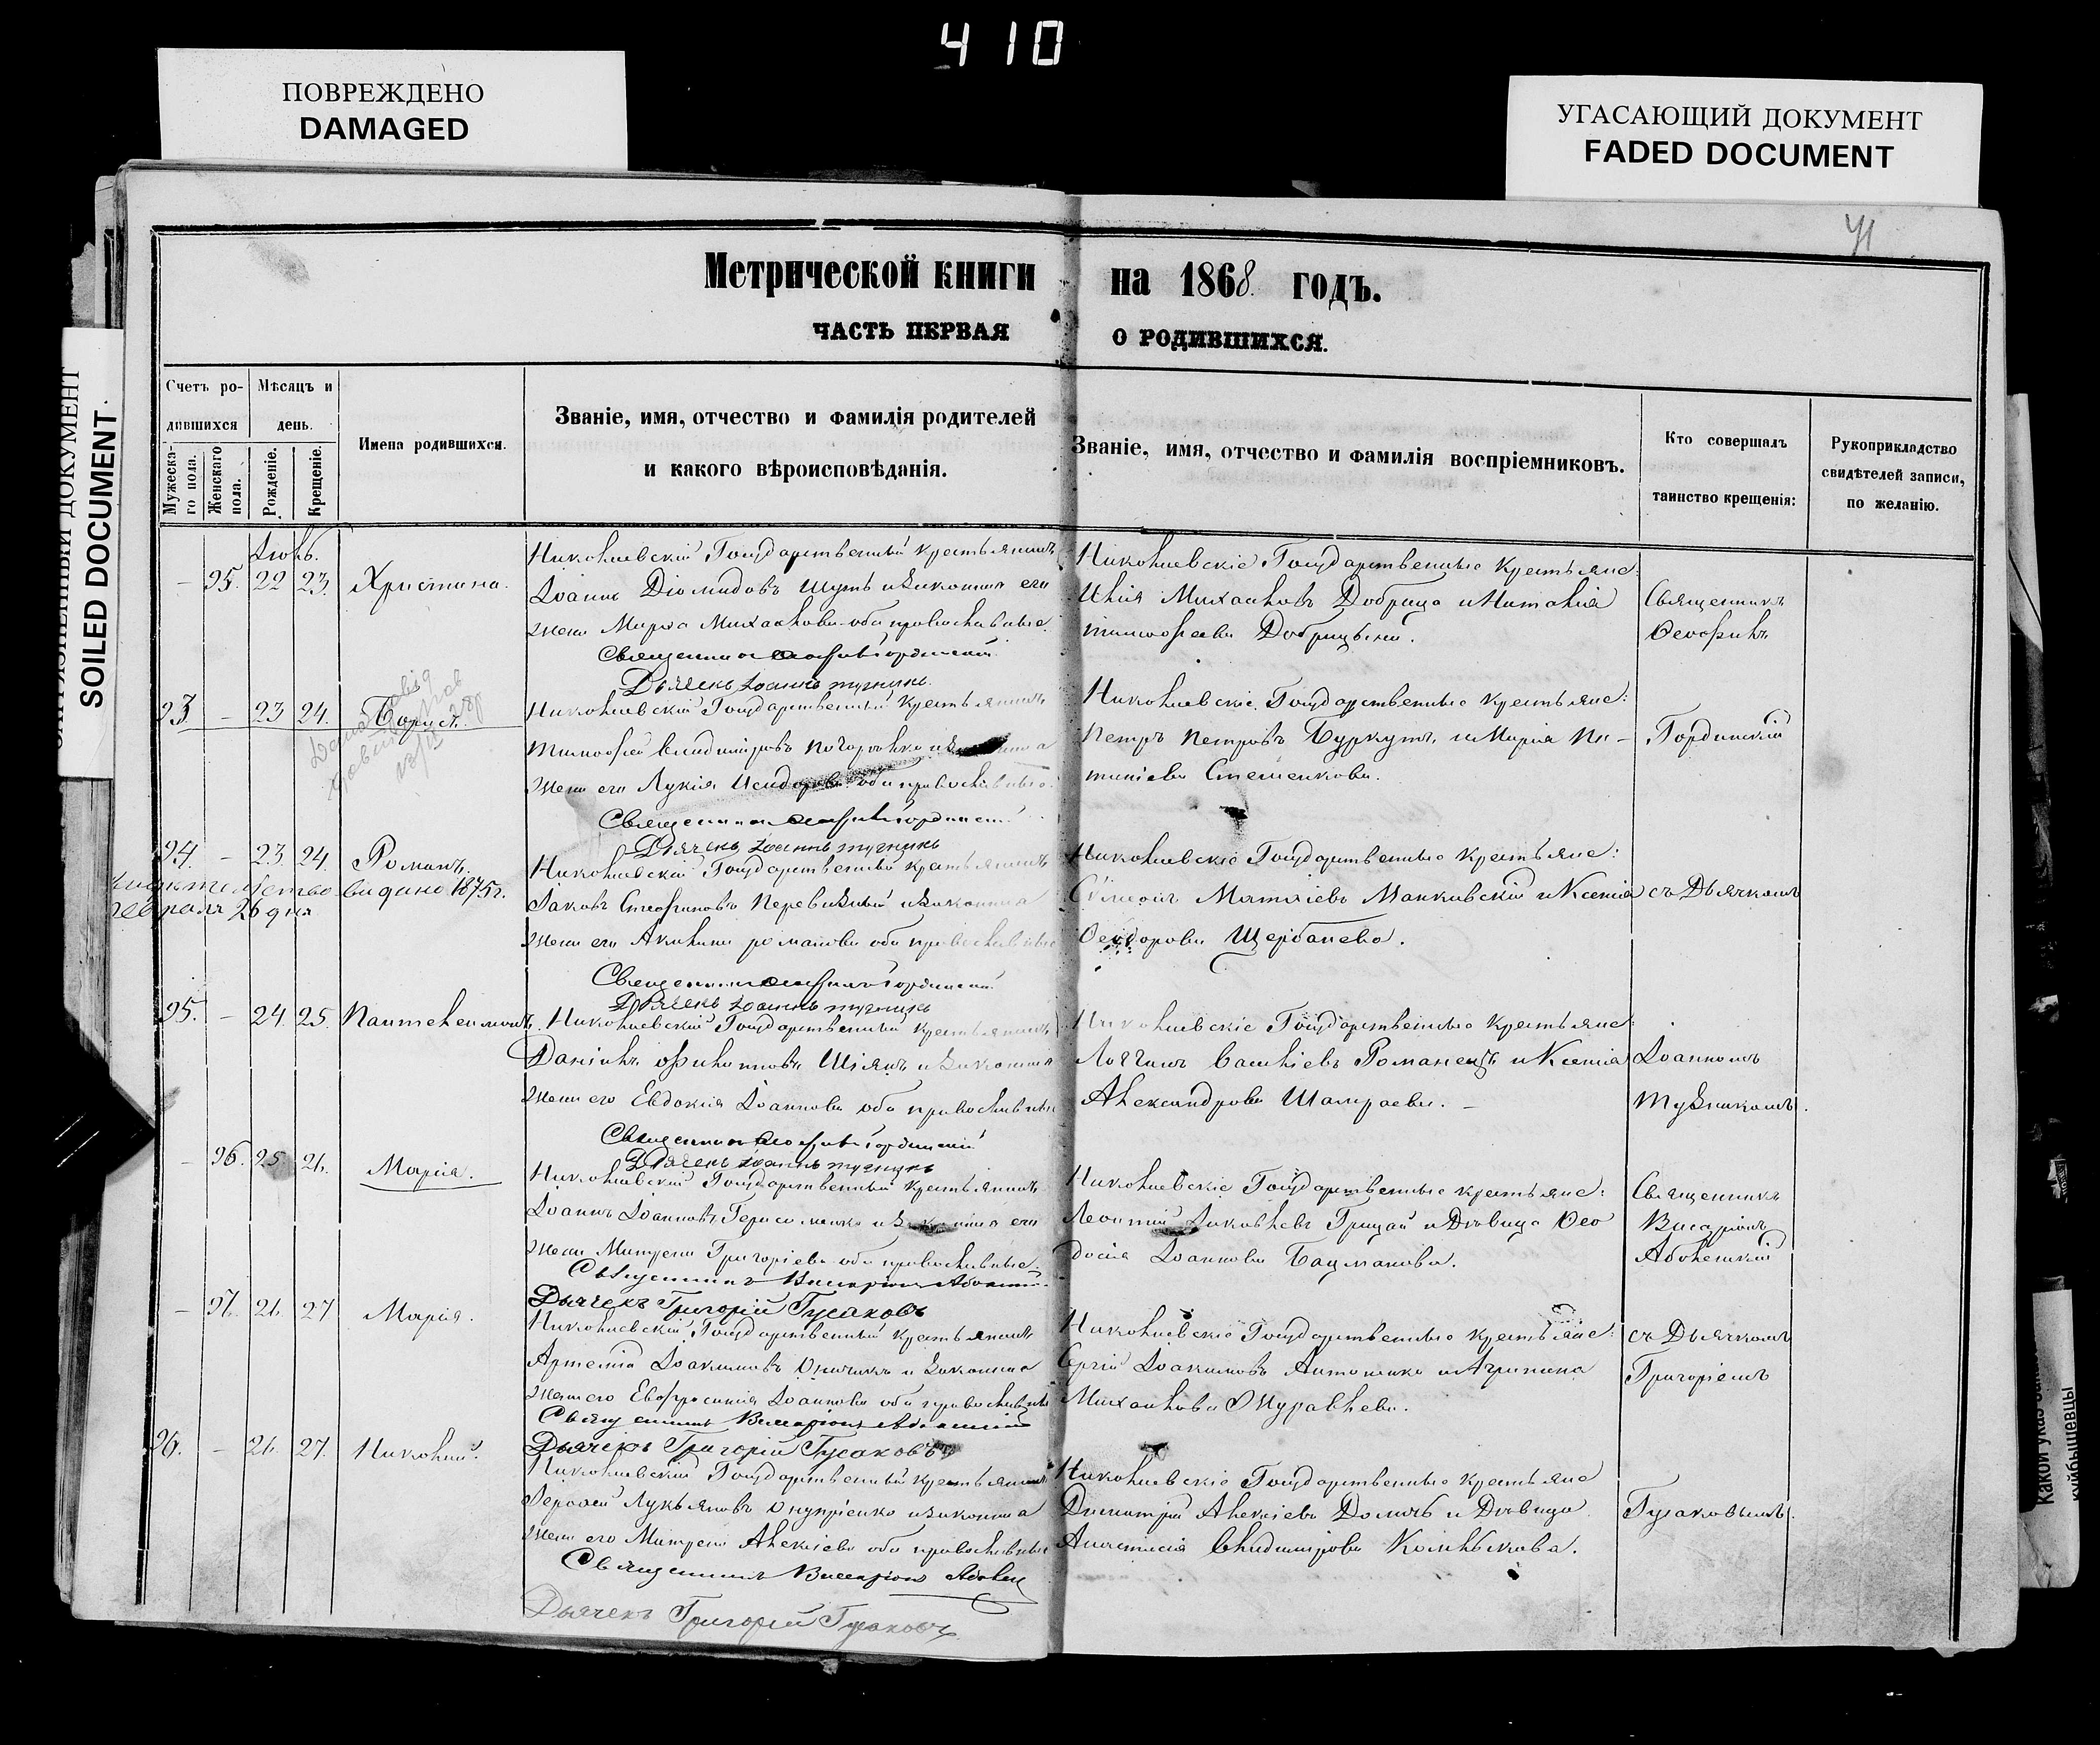 410
ПОВРЕЖДЕНО
DAMAGED
УГАСАЮЩИЙ ДОКУМЕНТ
FADED DOCUMENT
SOILED DOCUMENT
41
Метрической книги на 1868 годъ.
ЧАСТЬ ПЕРВАЯ О РОДИВШИХСЯ.
Счетъ ро-
дившихся
Мѣсяцъ и
день.
Мужеска-
го пола.
Женскаго
пола.
Рожденіе.
Крещеніе.
Имена родившихся.
Званіе, имя, отчество и фамилія родителей
и какого вѣроисповѣданія.
Званіе, имя, отчество и фамилія воспріемниковъ.
Кто совершалъ
таинство крещенія:
Рукоприкладство
свидѣтелей записи,
по желанію.
Іюль.
– 95. 22 23. Христина.
Николаевскій Государственный крестьянинъ
Іоаннъ Діомидовъ Шуть и законная его
жена Марѳа Михаилова оба православные.
Священникъ Ѳеофилъ Гординскій
Дьячекъ Іоаннъ
Николаевскіе Государственные крестьяне:
Илія Михаиловъ Добрица и Наталія
Тимоѳеева Добрицына.
Священникъ
Ѳеофилъ
93. – 23 24. Борисъ.
Николаевскій Государственный крестьянинъ
Тимоѳей Владиміровъ
жена его Лукія Исидорова оба православные.
Священникъ Ѳеофилъ Гординскій
Дьячекъ Іоаннъ
Николаевскіе Государственные крестьяне:
Петръ Петровъ Буркутъ, и Марія
Стешенкова.
Гординскій
94. – 23 24. Романъ.
видано 1875 г.
26 дня
Николаевскій Государственный крестьянинъ
Іаковъ Стефановъ Перевизный и законная
жена его Акилина Романова оба православные
Священникъ Ѳеофилъ Гординскій
Дьячекъ Іоаннъ
Николаевскіе Государственные крестьяне:
Сѵмеонъ Манкивскій и Ксенія
Ѳеодорова Щербанева.
съ Дьячкомъ
95. – 24. 25. Пантелеимонъ.
Николаевскій Государственный крестьянинъ
Даніилъ Филиповъ и законная
жена его Евдокія Іоаннова оба православные
Священникъ Ѳеофилъ Гординскій
Дьячекъ Іоаннъ
Николаевскіе Государственные крестьяне:
Логгинъ Романецъ и Ксенія
Александрова Шамраева. –
Іоанномъ
– 96. 25 26. Марія.
Николаевскій Государственный крестьянинъ
Іоаннъ Іоанновъ Герасименко и законная его
жена Матрена Григоріева оба православные.
Священникъ Виссаріонъ
Дьячекъ Григорій Гусаковъ
Николаевскіе Государственные крестьяне:
Леонтій Іаковлевъ Грицай и Дѣвица Ѳео
досія Іоаннова Бацманова.
Священникъ
Висаріонъ
– 97. 26. 27 Марія.
Николаевскій Государственный крестьянинъ
Артемій Іоакимовъ и законная
жена его Евфросинія Іоаннова оба православные
Священникъ Виссаріонъ
Дьячекъ Григорій Гусаковъ
Николаевскіе Государственные крестьяне:
Сергій Іоакимовъ Антоненко и Агрипина
Михаилова Журавлева.
съ Дьячкомъ
Григоріемъ
96. – 26. 27. Николай.
Николаевскій Государственный крестьянинъ
Герасій Лукьяновъ Онупріенко и законная
жена его Матрена Алексіева оба православные
Священникъ Виссаріонъ
Дьячекъ Григорій Гусаковъ
Николаевскіе Государственные крестьяне
Димитрій Алексіевъ и Дѣвица
Анастасія Владимірова
Гусаковымъ.